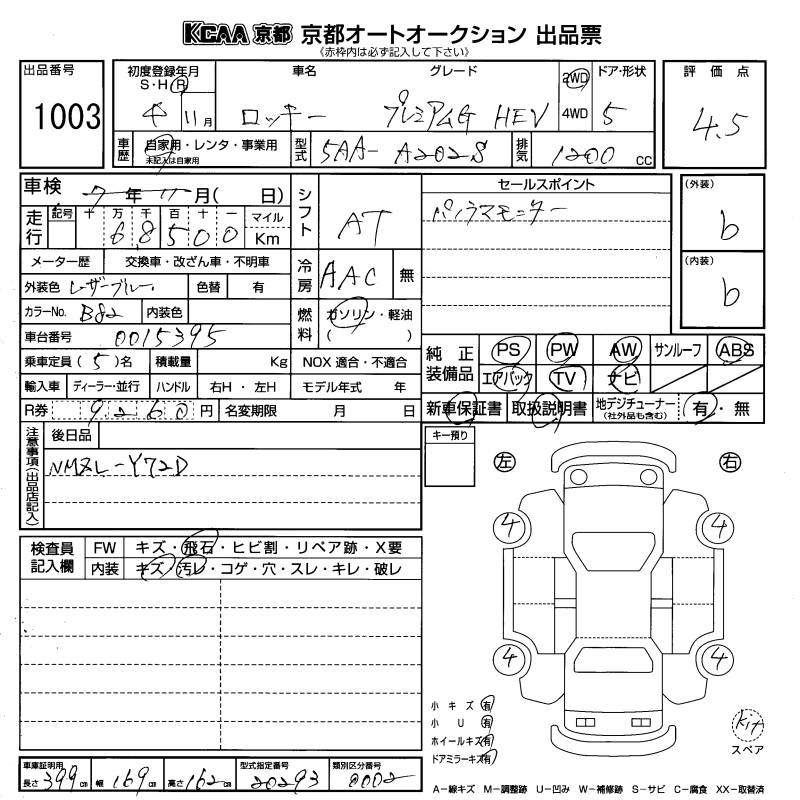 KCAA 京都 京都オートオークション 出品票
《赤枠内は必ず記入して下さい》
出品番号 初度登録年月 車名 グレード 2WD ドア・形状 評価点
S・H・R
1003 4 11月 ロッキー プレミアムG HEV 4WD 5 4.5
車歴 自家用・レンタ・事業用 型式 5AA-A202S 排気 1200 CC
未記入は自家用
車検 7年11月( 日) シフト AT セールスポイント (外装)
パノラマモニター b
走行 記号 十 万 千 百 十 一 マイル
6 8 5 0 0 Km
メーター歴 交換車・改ざん車・不明車 冷房 AAC 無 (内装)
外装色 レーザーブルー 色替 有 b
カラーNo. B82 内装色 燃料 ガソリン・軽油
( )
車台番号 0015395
乗車定員(5)名 積載量 Kg NOX 適合・不適合 純正装備品 PS PW AW サンルーフ ABS
輸入車 ディーラー・並行 ハンドル 右H・左H モデル年式 年 エアバック TV ナビ
R券 9260円 名変期限 月 日 新車保証書 取扱説明書 地デジチューナー 有・無
(社外品も含む)
注意事項(出品店記入) 後日品 キー預り
NMZL-Y72D
左 右
検査員記入欄 FW キズ・飛石・ヒビ割・リペア跡・X要 4 4
内装 キズ・汚レ・コゲ・穴・スレ・キレ・破レ
4 4
小キズ 有
小U 有
ホイールキズ 有
ドアミラーキズ 有
kit
スペア
車庫証明用 型式指定番号 類別区分番号
長さ 399cm 幅 169cm 高さ 162cm 20293 0002
A-線キズ M-調整跡 U-凹み W-補修跡 S-サビ C-腐食 XX-取替済